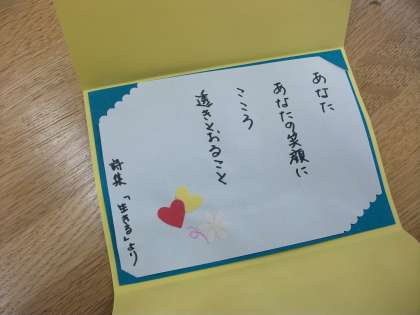 あなた
あなたの笑顔に
こころ
透きとおること
詩集「生きる」より